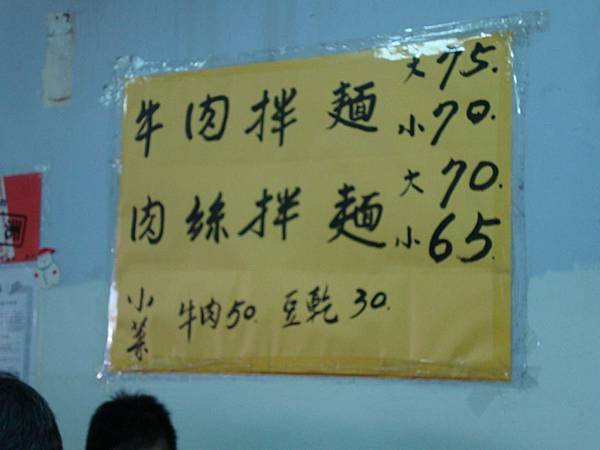 牛肉拌麵 大75.
小70.
肉絲拌麵 大70.
小65.
小菜 牛肉50. 豆乾30.